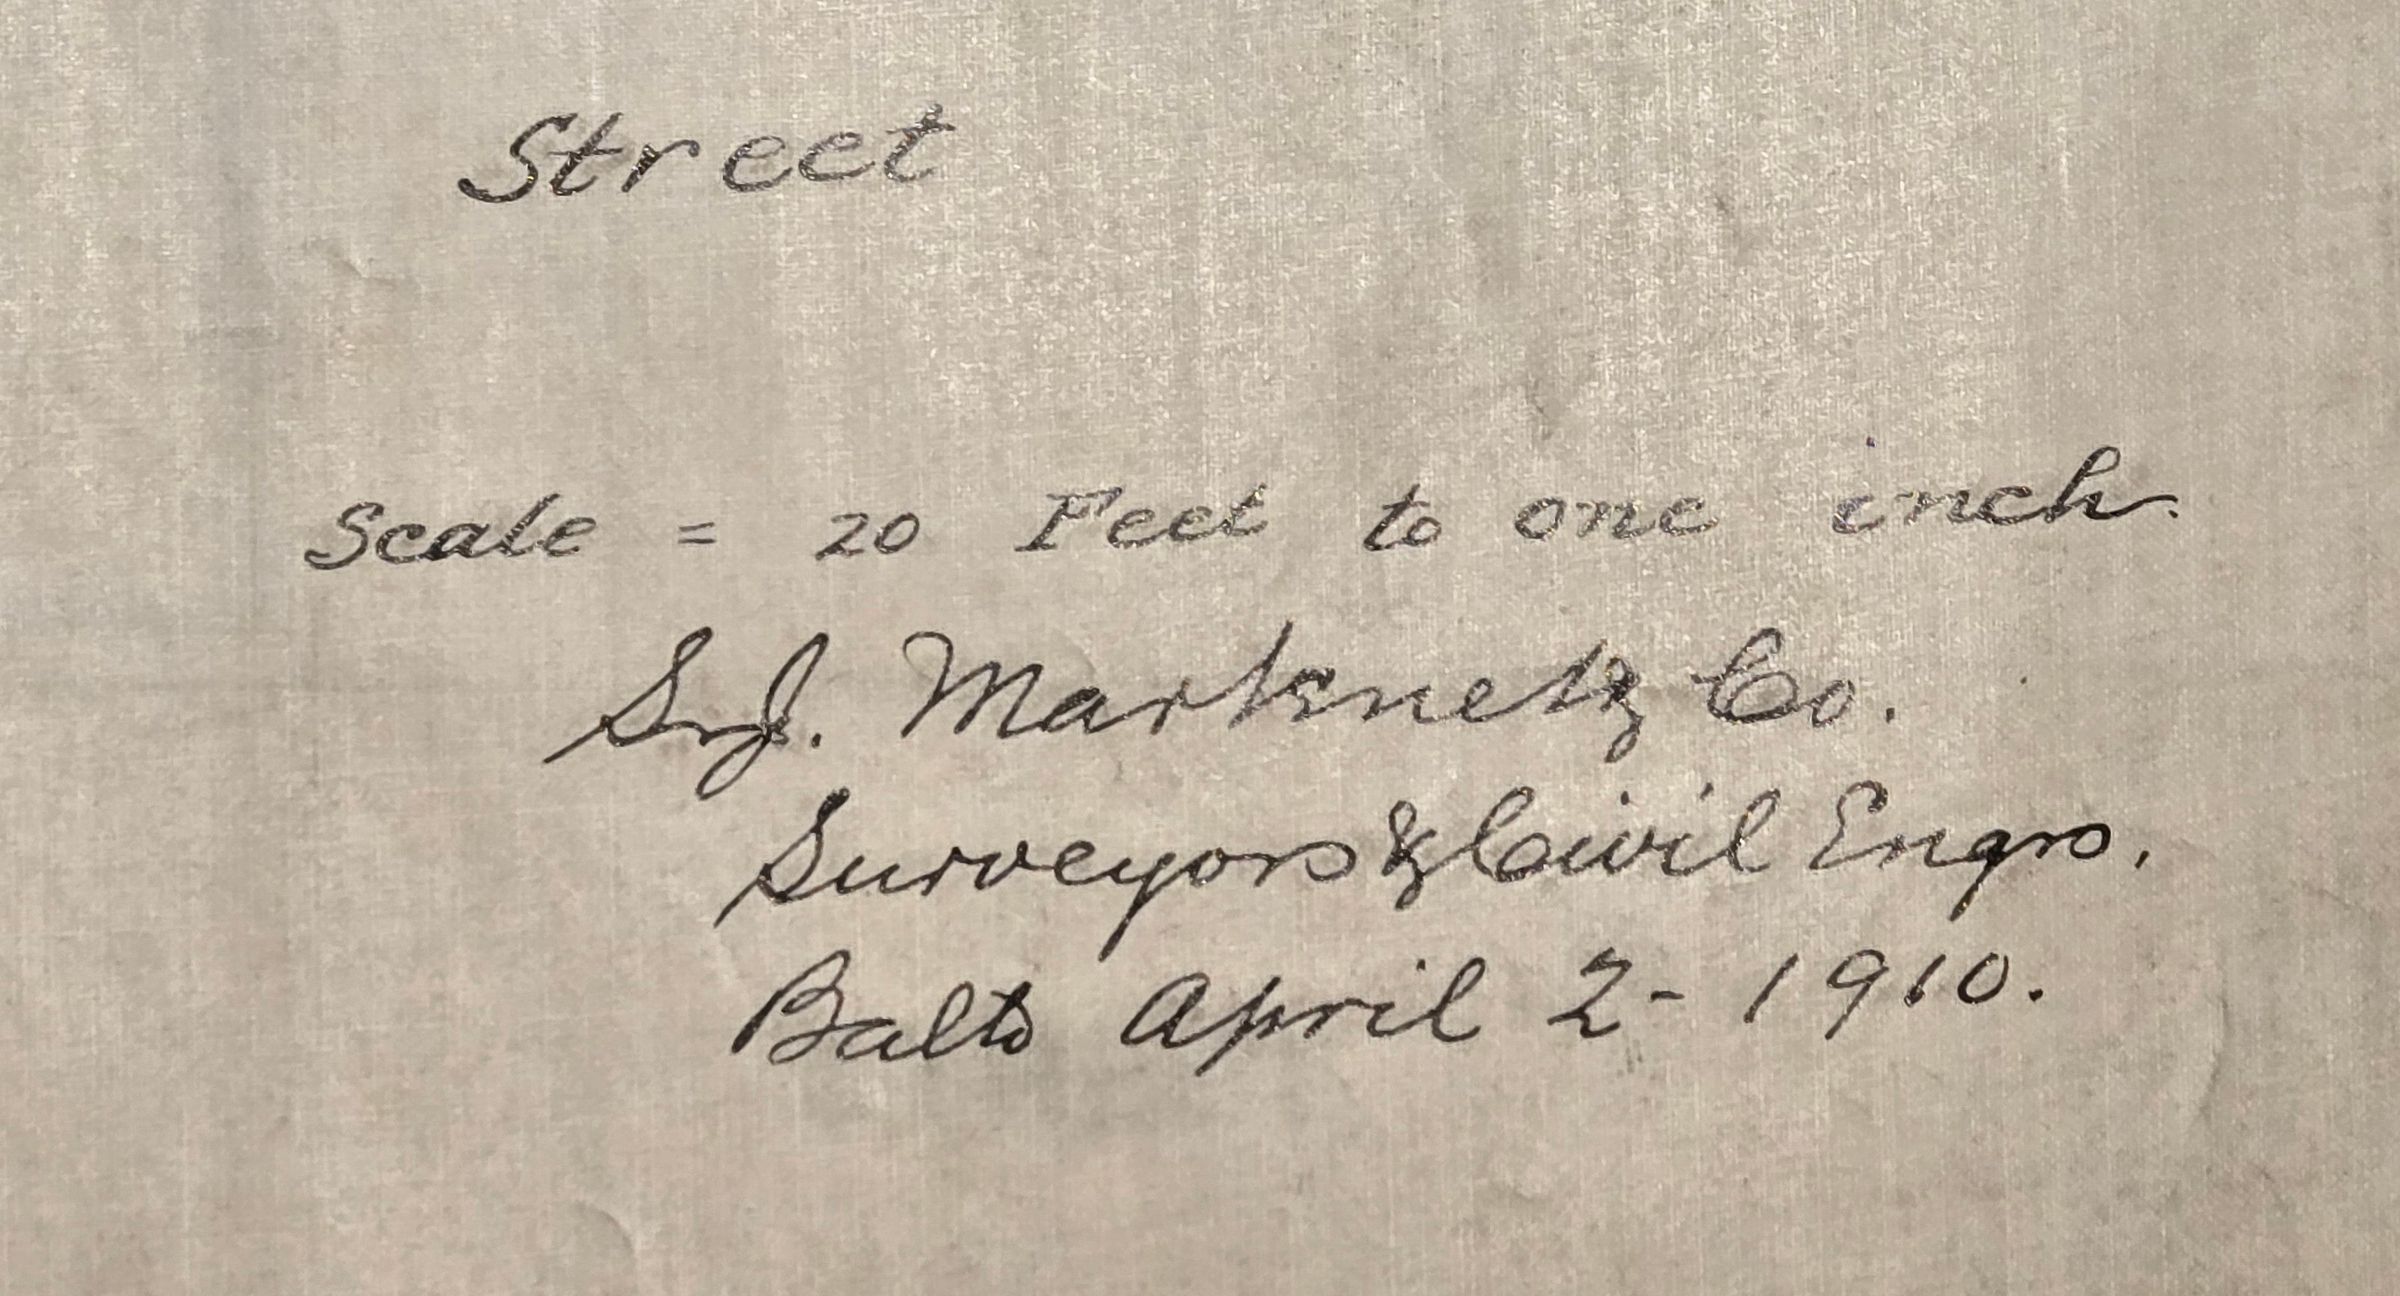 Street
Scale = 20 Feet to one inch.
S. J. Martenet & Co.
Surveyors & Civil Engrs.
Balto April 2 - 1910.